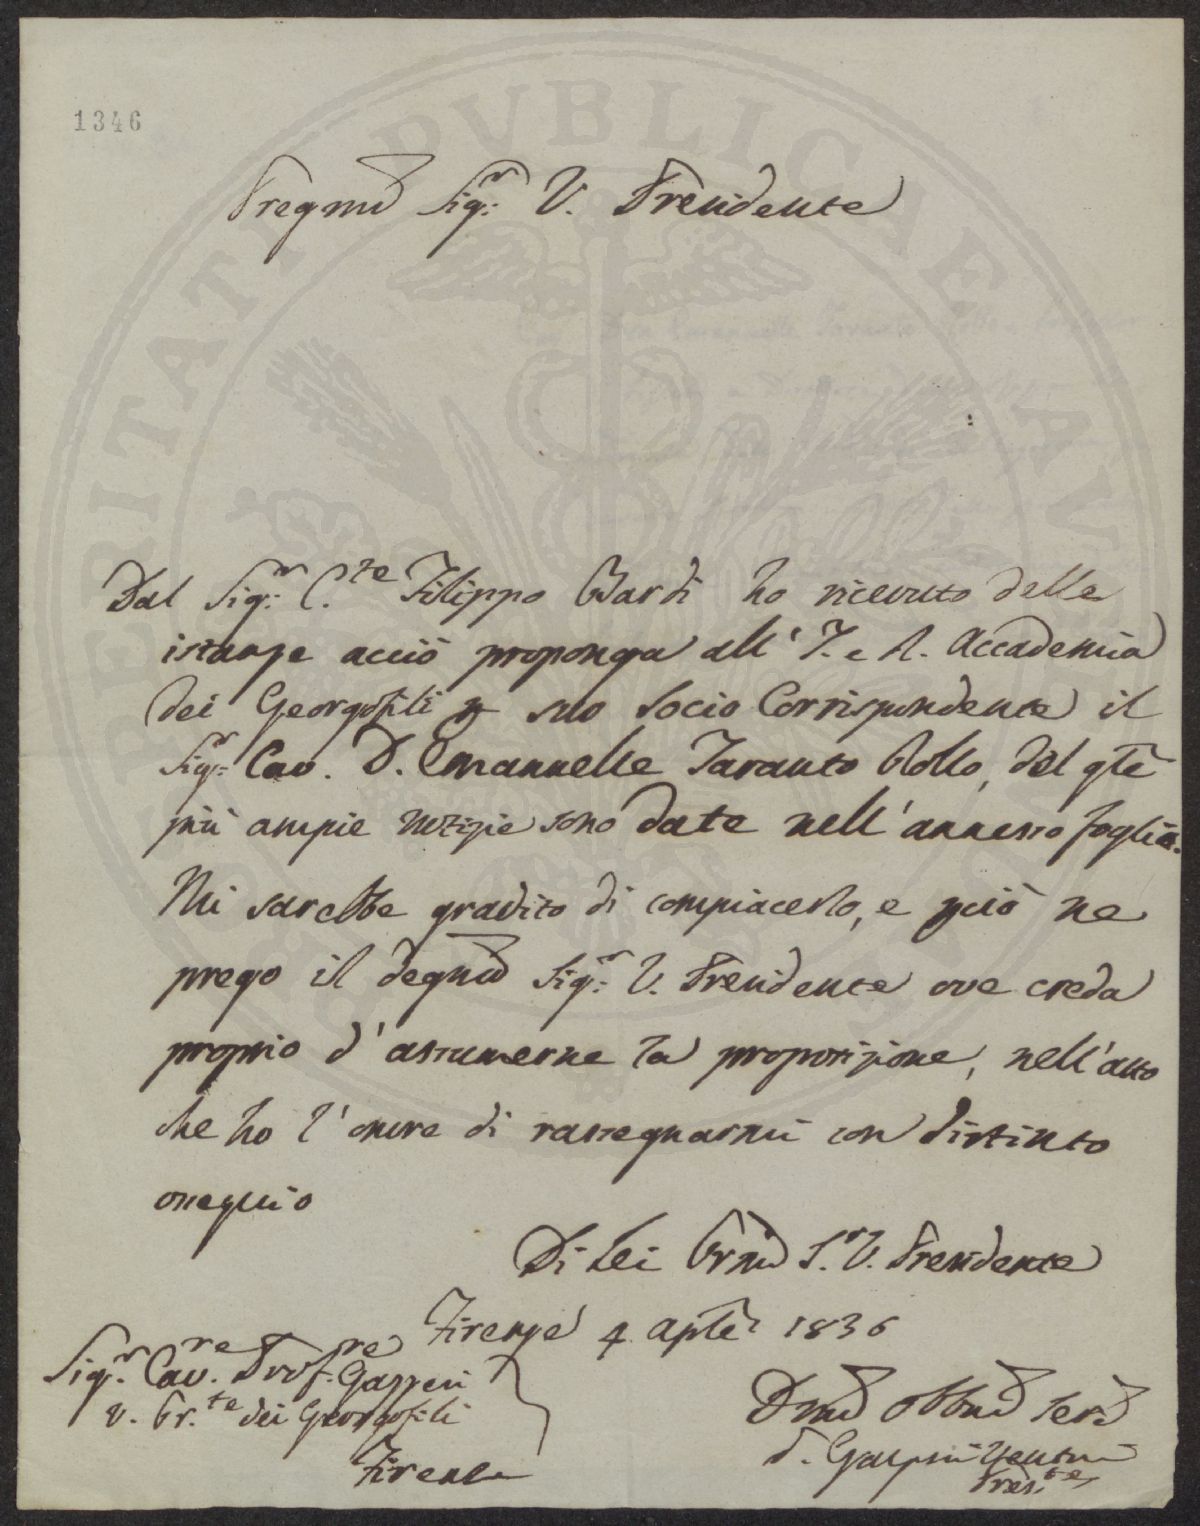 1346
Pregmo Sigr. V. Presidente
Dal Sigr. C.te Filippo Bardi ho ricevuto delle
istanze acciò proponga all' I. e R. Accademia
dei Georgofili p suo Socio Corrispondente il
Sigr. Cav. D. Emanuelle Taranto Rollo, del qle
più ampie notizie sono date nell' annesso foglio.
Mi sarebbe gradito di compiacerlo, e pciò ne
prego il degmo Sigr. V. Presidente ove creda
proprio d' assumerne la proposizione, nell' atto
che ho l' onore di rassegnarmi con distinto
ossequio
Di Lei Prmo S.r V. Presidente
Firenze 4 aple 1836
Sigr. Cav.re Prof.re Gazzeri
V. Pr.te dei Georgofili
Firenze
Dmo obbmo Ser
Pres.te
PROSPERITATI PVBLICAE AVGENDAE